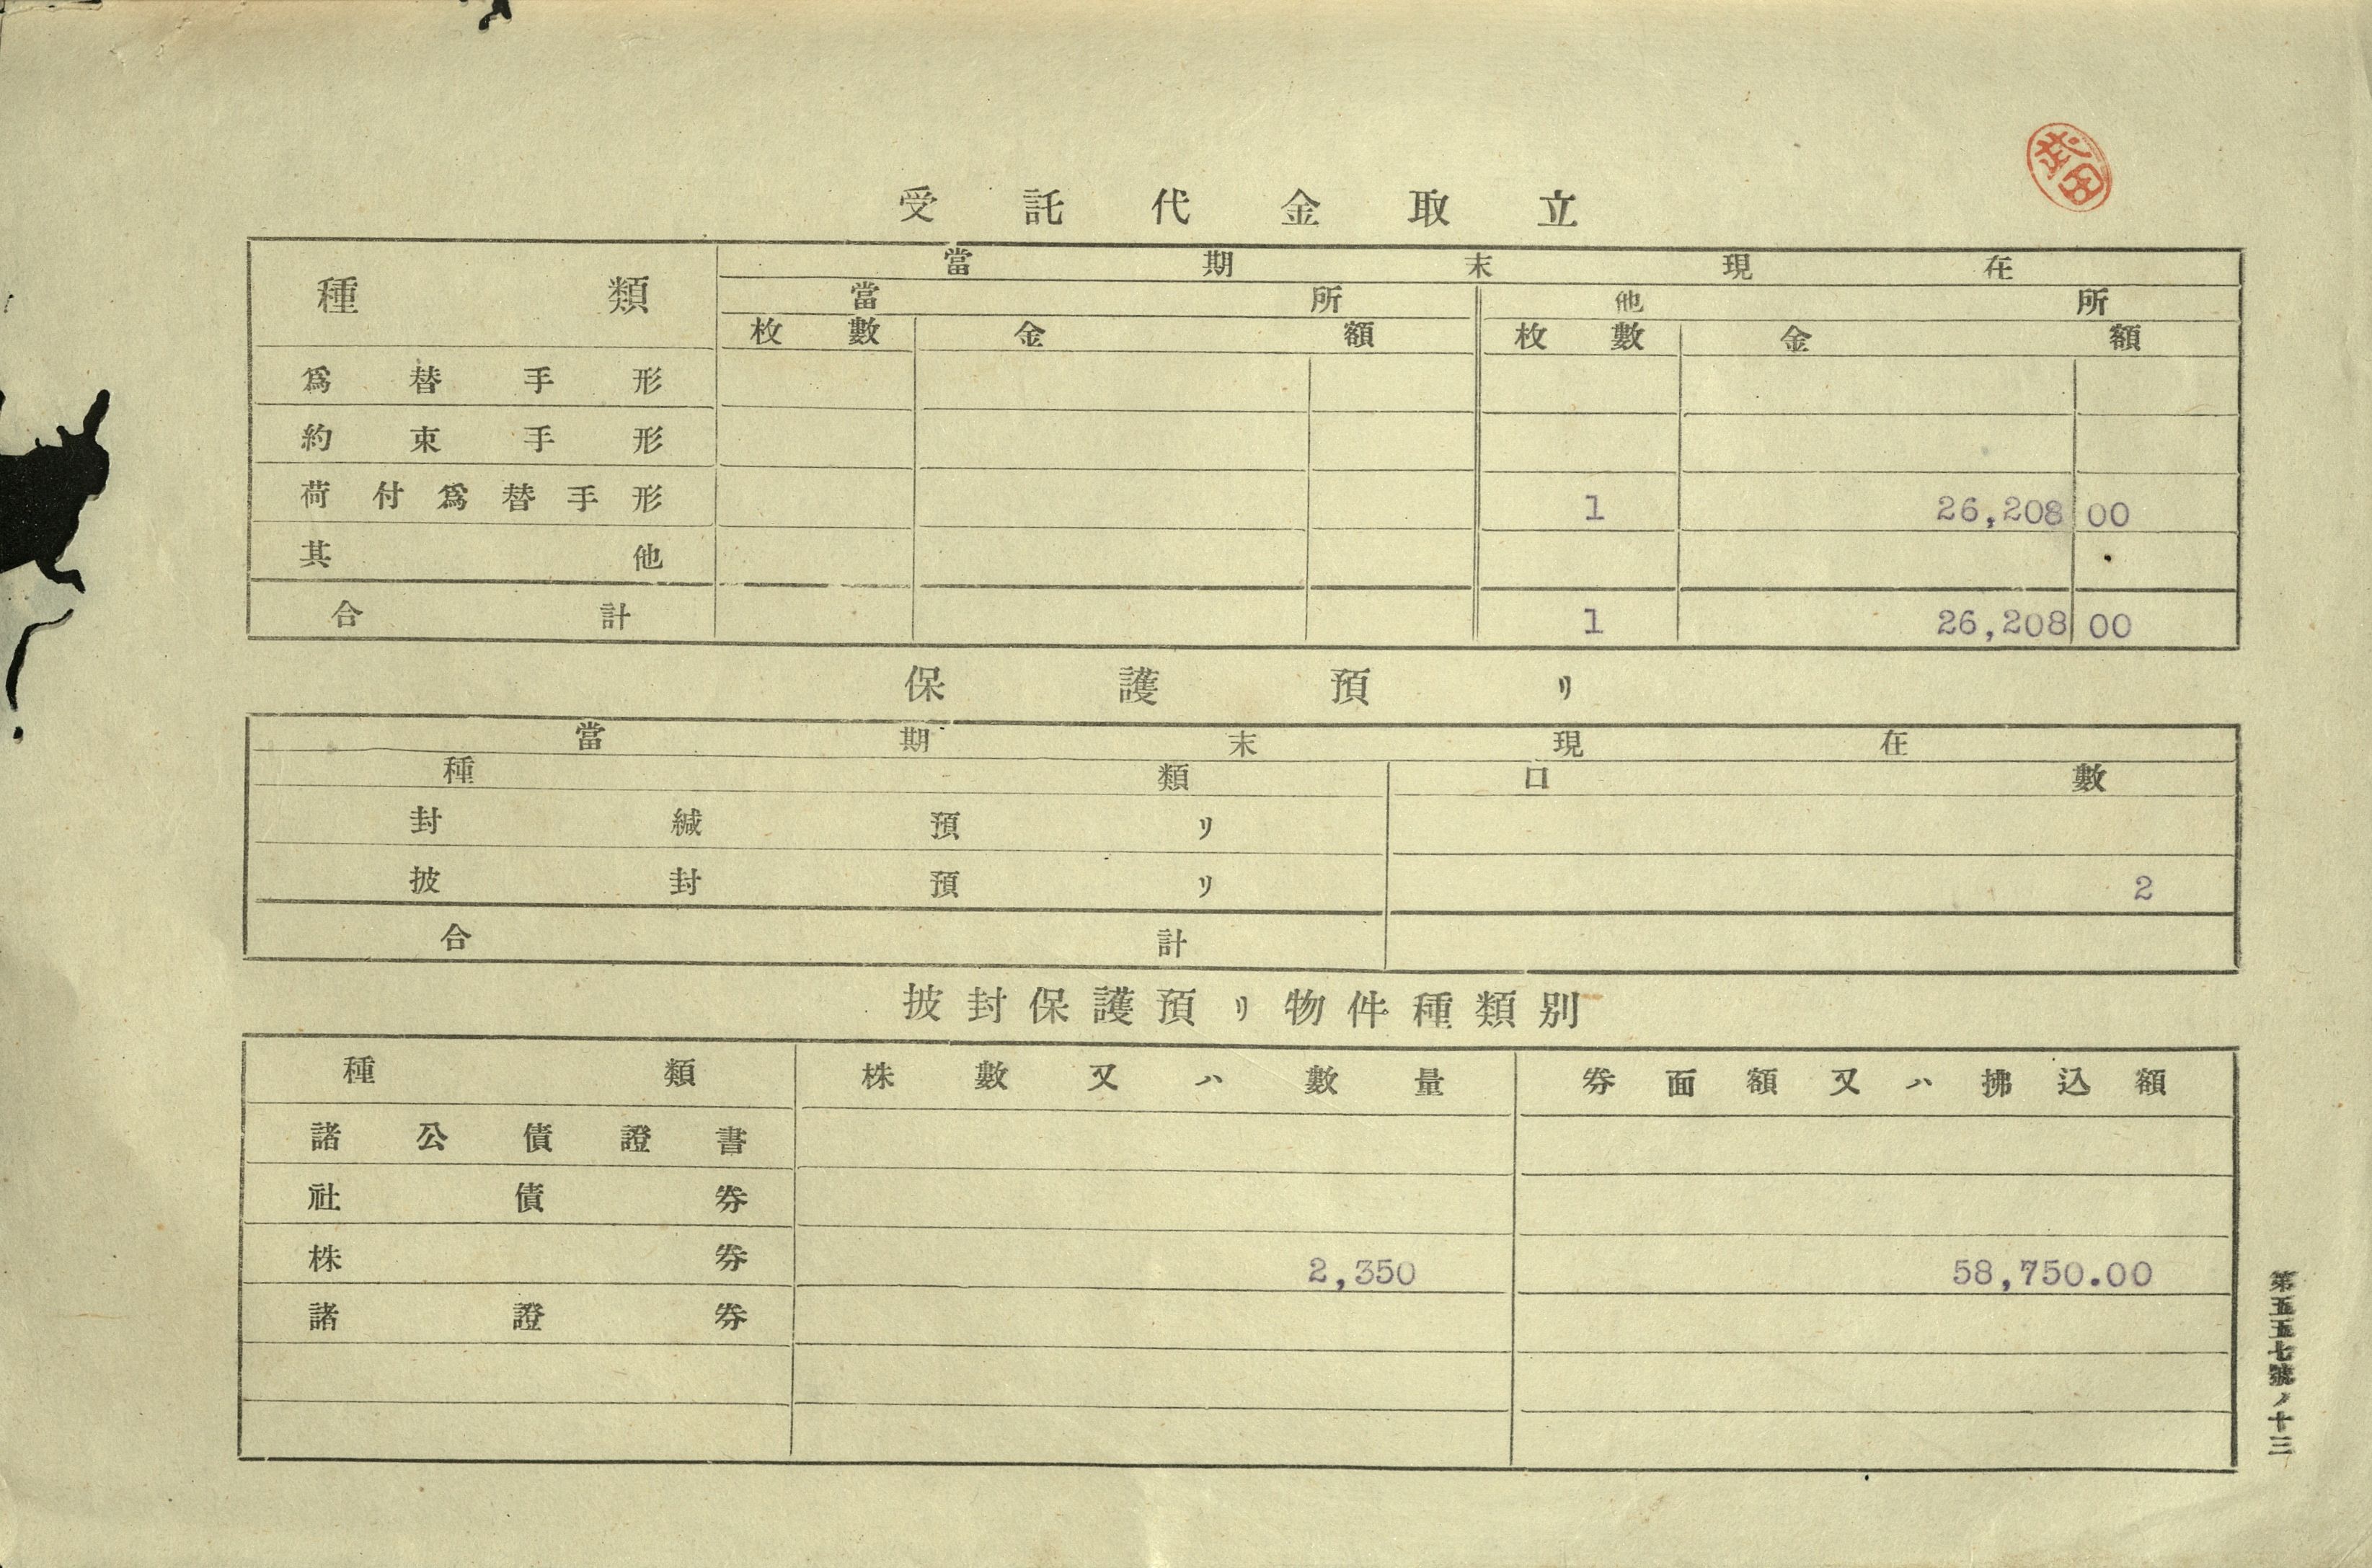 武田
受託代金取立
種類 當期末現在
當所 他所
枚數 金額 枚數 金額
爲替手形
約束手形
荷付爲替手形 1 26,208 00
其他
合計 1 26,208 00
保護預リ
當期末現在
種類 口數
封緘預リ
披封預リ 2
合計
披封保護預リ物件種類別
種類 株數又ハ數量 券面額又ハ拂込額
諸公債證書
社債券
株券 2,350 58,750.00
諸證券
第五五七號ノ十三